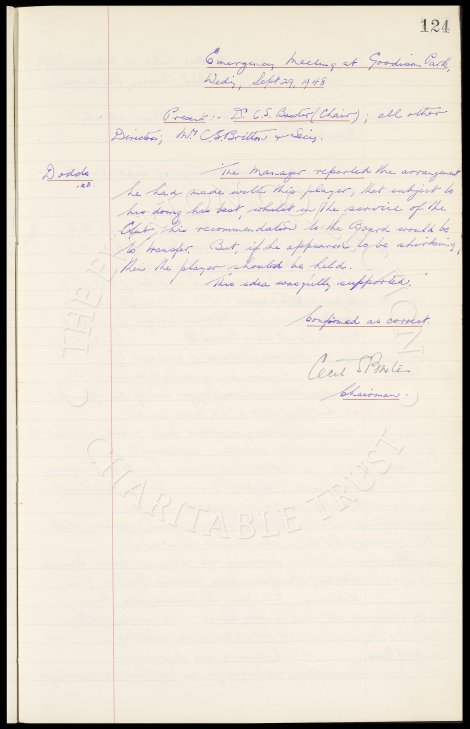 124
Emergency Meeting at Goodison Park,
Wedy, Sept 29, 1948
Present:- Dr. C.S. Baxter (Chair); all other
Directors; Mr. C.S. Britton & Secy.
Dodds
The Manager reported the arrangement
he had made with this player, that subject to
his doing his best, whilst in the service of the
Club, his recommendation to the Board would be
to transfer. But, if he appeared to be shirking,
then the player should be held.
This idea was fully supported.
Confirmed as correct.
Cecil S Baxter
Chairman.
THE EVERTON
COLLECTION
CHARITABLE TRUST